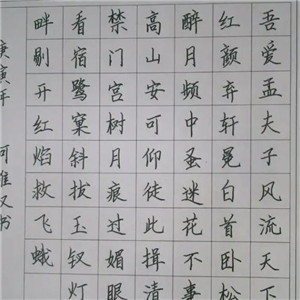 吾爱孟夫子风流天下
红颜弃轩冕白首卧松
醉月频中蚤迷花不事
高山安可仰徒此揖清
禁门宫树月痕过媚眼
看宿鹭窠斜拔玉钗灯
畔剔开红焰救飞蛾
年 又书